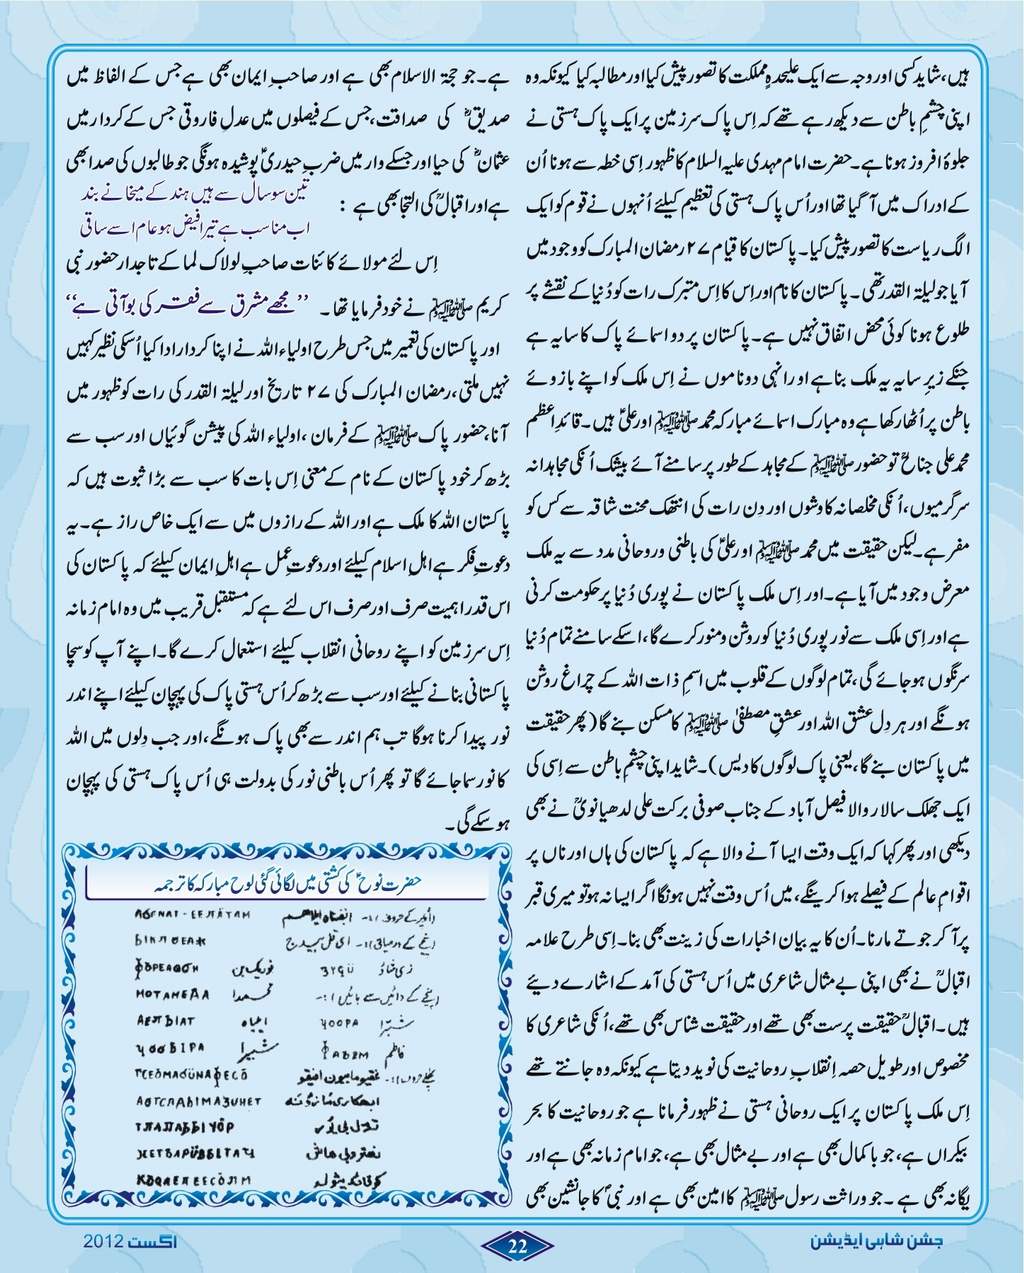 ہیں، شاید کسی اور وجہ سے ایک علیحدہ مملکت کا تصور پیش کیا اور مطالبہ کیا کیونکہ وہ
اپنی چشمِ باطن سے دیکھ رہے تھے کہ اِس پاک سرزمین پر ایک پاک ہستی نے
جلوۂ افروز ہونا ہے۔ حضرت امام مہدی علیہ السلام کا ظہور اِسی خطہ سے ہونا اُن
کے ادراک میں آ گیا تھا اور اُس پاک ہستی کی تعظیم کیلئے اُنہوں نے قوم کو ایک
الگ ریاست کا تصور پیش کیا۔ پاکستان کا قیام ۲۷ رمضان المبارک کو وجود میں
آیا جو لیلۃ القدر تھی۔ پاکستان کا نام اور اِس کا اِس متبرک رات کو دُنیا کے نقشے پر
طلوع ہونا کوئی محض اتفاق نہیں ہے۔ پاکستان پر دو اسمائے پاک کا سایہ ہے
جنکے زیرِ سایہ یہ ملک بنا ہے اور انہی دو ناموں نے اِس ملک کو اپنے بازوئے
باطن پر اُٹھا رکھا ہے وہ مبارک اسمائے مبارکہ محمد ﷺ اور علیؑ ہیں۔ قائدِ اعظم
محمد علی جناحؒ تو حضور ﷺ کے مجاہد کے طور پر سامنے آئے بیشک اُنکی مجاہدانہ
سرگرمیوں، اُنکی مخلصانہ کاوشوں اور دِن رات کی انتھک محنت شاقہ سے کس کو
مفر ہے۔ لیکن حقیقت میں محمد ﷺ اور علیؑ کی باطنی و روحانی مدد سے یہ ملک
معرض وجود میں آیا ہے۔ اور اِس ملک پاکستان نے پوری دُنیا پر حکومت کرنی
ہے اور اِسی ملک سے نور پوری دُنیا کو روشن و منور کرے گا، اسکے سامنے تمام دُنیا
سرنگوں ہو جائے گی، تمام لوگوں کے قلوب میں اسمِ ذات اللہ کے چراغ روشن
ہونگے اور ہر دل عشق اللہ اور عشقِ مصطفیٰ ﷺ کا مسکن بنے گا (پھر حقیقت
میں پاکستان بنے گا، یعنی پاک لوگوں کا دیس)۔ شاید اپنی چشمِ باطن سے اِسی کی
ایک جھلک سالار والا فیصل آباد کے جناب صوفی برکت علی لدھیانویؒ نے بھی
دیکھی اور پھر کہا کہ ایک وقت ایسا آنے والا ہے کہ پاکستان کی ہاں اور ناں پر
اقوامِ عالم کے فیصلے ہوا کرینگے، میں اُس وقت نہیں ہونگا اگر ایسا نہ ہو تو میری قبر
پر آ کر جوتے مارنا۔ اُن کا یہ بیان اخبارات کی زینت بھی بنا۔ اِسی طرح علامہ
اقبالؒ نے بھی اپنی بے مثال شاعری میں اُس ہستی کی آمد کے اشارے دیئے
ہیں۔ اقبالؒ حقیقت پرست بھی تھے اور حقیقت شناس بھی تھے، اُنکی شاعری کا
مخصوص اور طویل حصہ اِنقلابِ روحانیت کی نوید دیتا ہے کیونکہ وہ جانتے تھے
اِس ملک پاکستان پر ایک روحانی ہستی نے ظہور فرمانا ہے جو روحانیت کا بحر
بیکراں ہے، جو باکمال بھی ہے اور بے مثال بھی ہے، جو امام زمانہ بھی ہے اور
یگانہ بھی ہے۔ جو وراثت رسول ﷺ کا امین بھی ہے اور نبیؐ کا جانشین بھی
ہے۔ جو حجۃ الاسلام بھی ہے اور صاحبِ ایمان بھی ہے جس کے الفاظ میں
صدیقؓ کی صداقت، جس کے فیصلوں میں عدلِ فاروقی جس کے کردار میں
عثمانؓ کی حیا اور جسکے وار میں ضربِ حیدریؑ پوشیدہ ہونگی جو طالبوں کی صدا بھی
ہے اور اقبالؒ کی التجا بھی ہے :
تین سو سال سے ہیں ہند کے میخانے بند
اب مناسب ہے تیرا فیض ہو عام اے ساقی
اِس لئے مولائے کائنات صاحبِ لولاک لما کے تاجدار حضور نبی
کریم ﷺ نے خود فرمایا تھا۔ ”مجھے مشرق سے فقر کی بو آتی ہے“
اور پاکستان کی تعمیر میں جس طرح اولیاء اللہ نے اپنا کردار ادا کیا اُسکی نظیر کہیں
نہیں ملتی، رمضان المبارک کی ۲۷ تاریخ اور لیلۃ القدر کی رات کو ظہور میں
آنا، حضور پاک ﷺ کے فرمان، اولیاء اللہ کی پیشن گوئیاں اور سب سے
بڑھ کر خود پاکستان کے نام کے معنی اِس بات کا سب سے بڑا ثبوت ہیں کہ
پاکستان اللہ کا ملک ہے اور اللہ کے رازوں میں سے ایک خاص راز ہے۔ یہ
دعوتِ فکر ہے اہلِ اسلام کیلئے اور دعوتِ عمل ہے اہلِ ایمان کیلئے کہ پاکستان کی
اس قدر اہمیت صرف اور صرف اس لئے ہے کہ مستقبل قریب میں وہ امام زمانہ
اِس سرزمین کو اپنے روحانی انقلاب کیلئے استعمال کرے گا۔ اپنے آپ کو سچا
پاکستانی بنانے کیلئے اور سب سے بڑھ کر اُس ہستی پاک کی پہچان کیلئے اپنے اندر
نور پیدا کرنا ہوگا تب ہم اندر سے بھی پاک ہونگے، اور جب دِلوں میں اللہ
کا نور سما جائے گا تو پھر اُس باطنی نور کی بدولت ہی اُس پاک ہستی کی پہچان
ہو سکے گی۔
حضرت نوحؑ کی کشتی میں لگائی گئی لوح مبارکہ کا ترجمہ
محمدا
ایلیاہ
شبّرا
شبیرا
فاطم
جشن شاہی ایڈیشن
22
اگست 2012